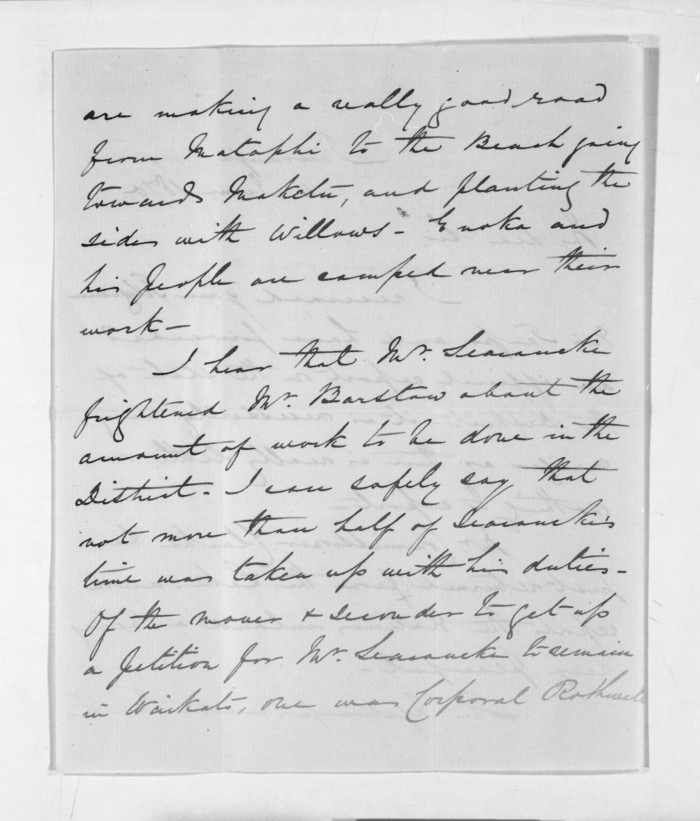 are making a really good road
from Mataphi to the Beach going
towards Maketu, and planting the
sides with Willows - Enoka and
his People are camped near their
work -
I hear that Mr. Searancke
frightened Mr. Barstow about the
amount of work to be done in the
District - I can safely say that
not more than half of Searancke's
time was taken up with his duties -
Of the mover & seconder to get up
a petition for Mr. Searancke to remain
in Waikato, one was Corporal Rothwell